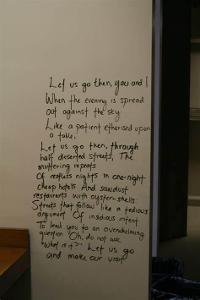 Let us go then, you and I
When the evening is spread
out against the sky
Like a patient etherised upon
a table.
Let us go then, through
half deserted streets, The
muttering repeats
Of restless nights in one-night
cheap hotels And sawdust
restaurants with oyster-shells
Streets that follow like a tedious
argument Of insidious intent
To lead you to an overwhelming
question Oh, do not ask
"What is it?" Let us go
and make our visit